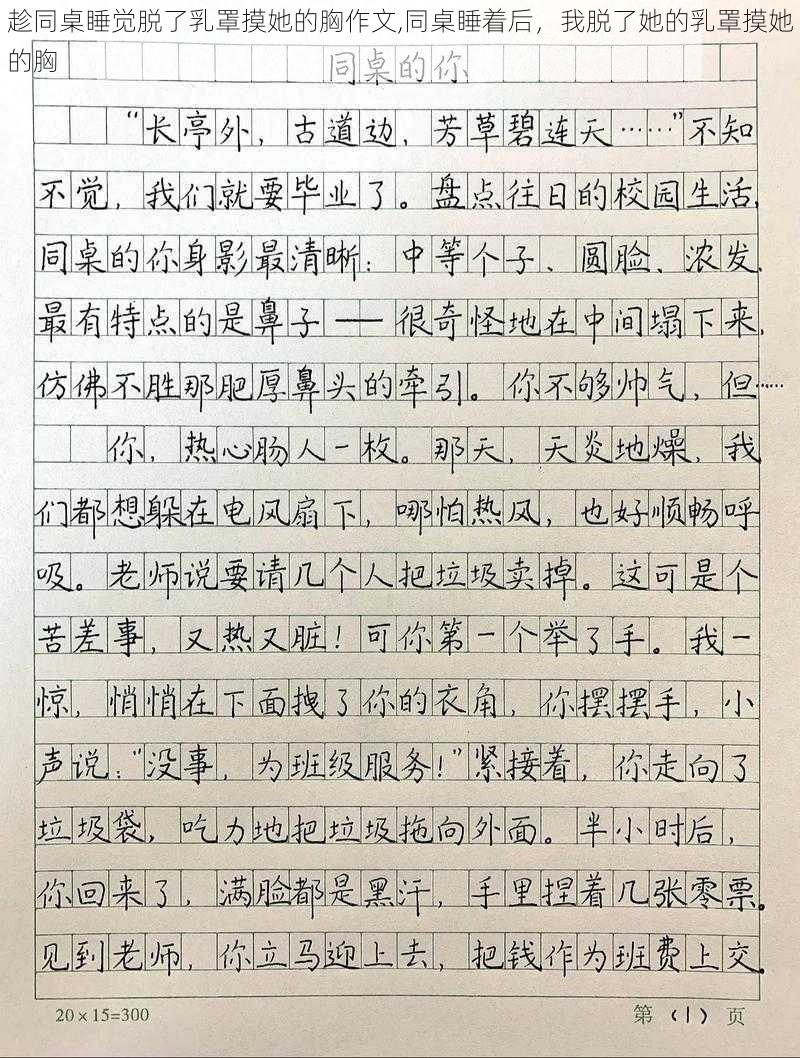 同桌的你
“长亭外，古道边，芳草碧连天……”不知
不觉，我们就要毕业了。盘点往日的校园生活，
同桌的你身影最清晰：中等个子、圆脸、浓发，
最有特点的是鼻子——很奇怪地在中间塌下来，
仿佛不胜那肥厚鼻头的牵引。你不够帅气，但……
你，热心肠人一枚。那天，天炎地燥，我
们都想躲在电风扇下，哪怕热风，也好顺畅呼
吸。老师说要请几个人把垃圾卖掉。这可是个
苦差事，又热又脏！可你第一个举了手。我一
惊，悄悄在下面拽了你的衣角，你摆摆手，小
声说：“没事，为班级服务！”紧接着，你走向了
垃圾袋，吃力地把垃圾拖向外面。半小时后，
你回来了，满脸都是黑汗，手里捏着几张零票。
见到老师，你立马迎上去，把钱作为班费上交。
20×15=300
第（1）页